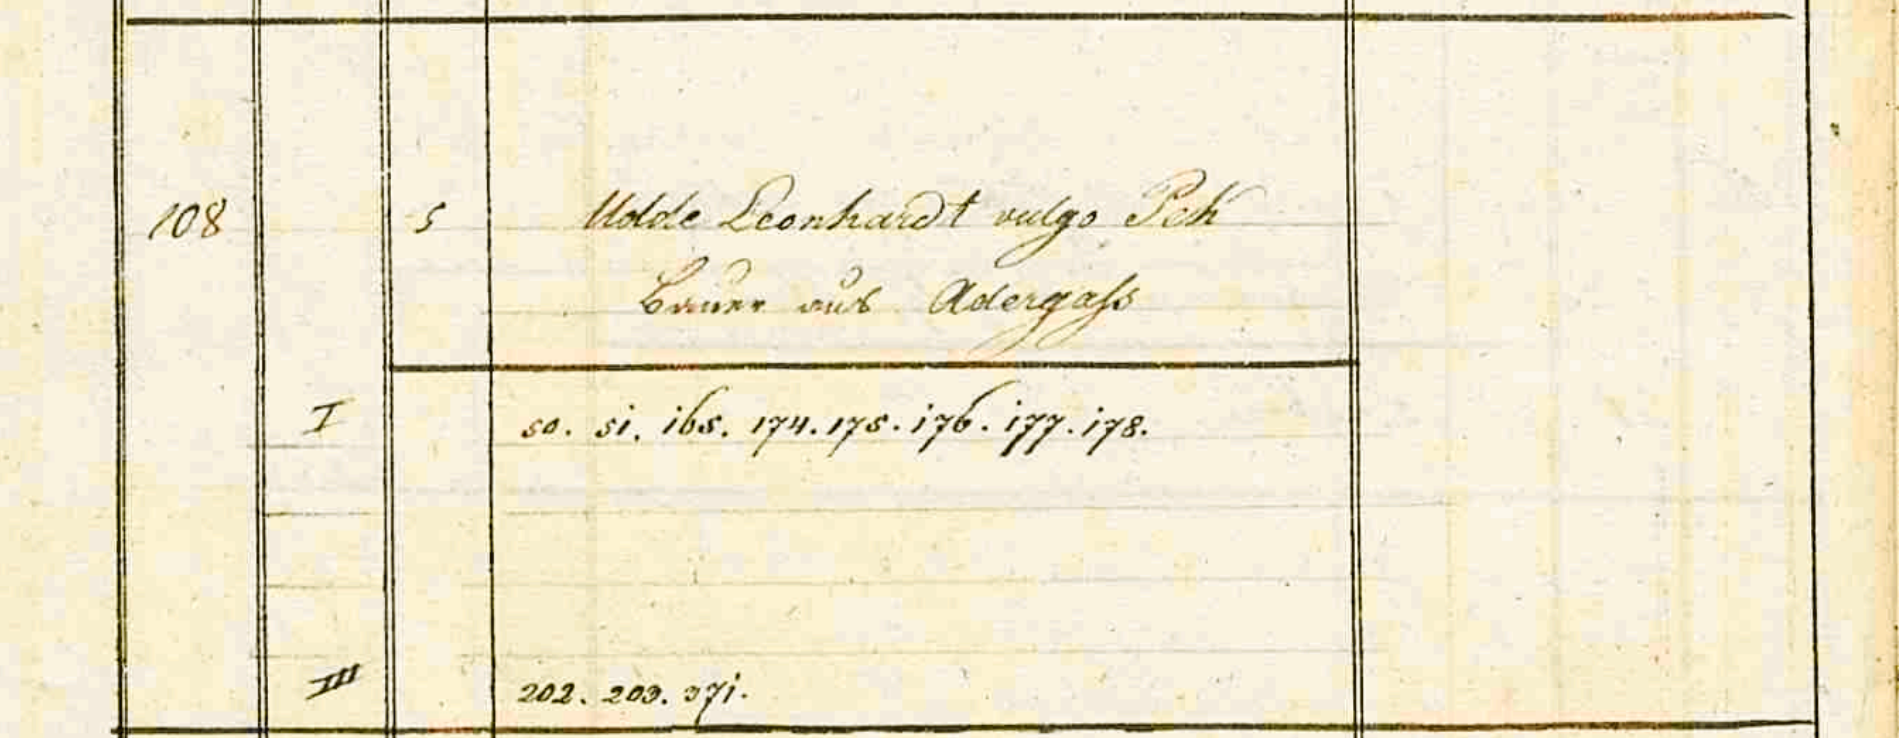 108 5 Udde Leonhardt vulgo
Bauer aus Adergaſs
I 50. 51. 165. 174. 175. 176. 177. 178.
III 202. 203. 371.